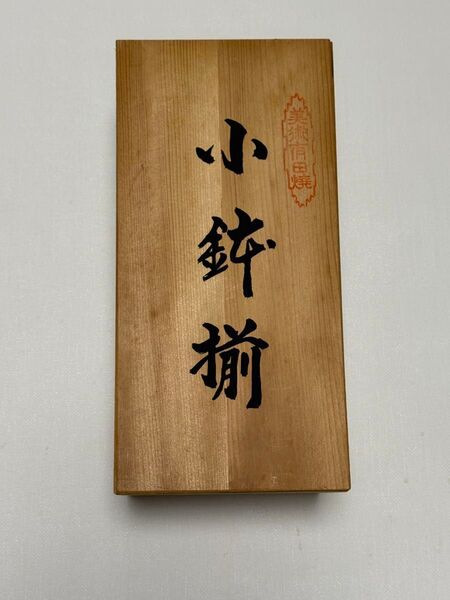 美術有田焼
小鉢揃